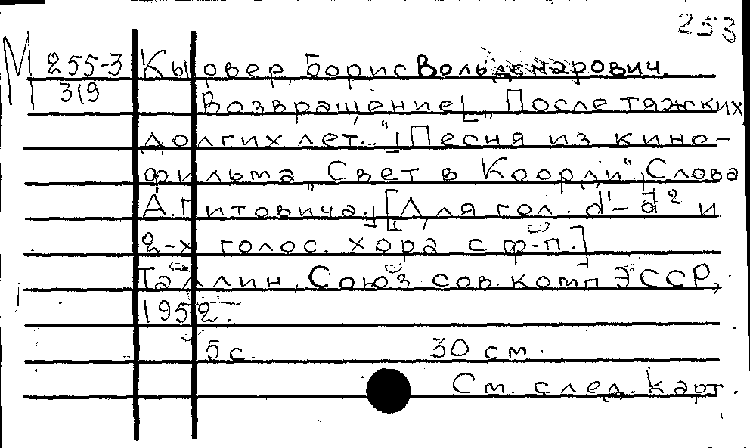 253
М 255-3 Кырвер, Борис Вольдемарович.
319 Возвращение[„После тяжких
долгих лет..."] Песня из кино-
фильма „Свет в Коорди". Слова
А. Гитовича. [Для гол. d¹-d² и
2-х голос. хора с ф-п.]
Таллин, Союз сов. комп. ЭССР,
1952.
5 с. 30 см.
См. след. карт.